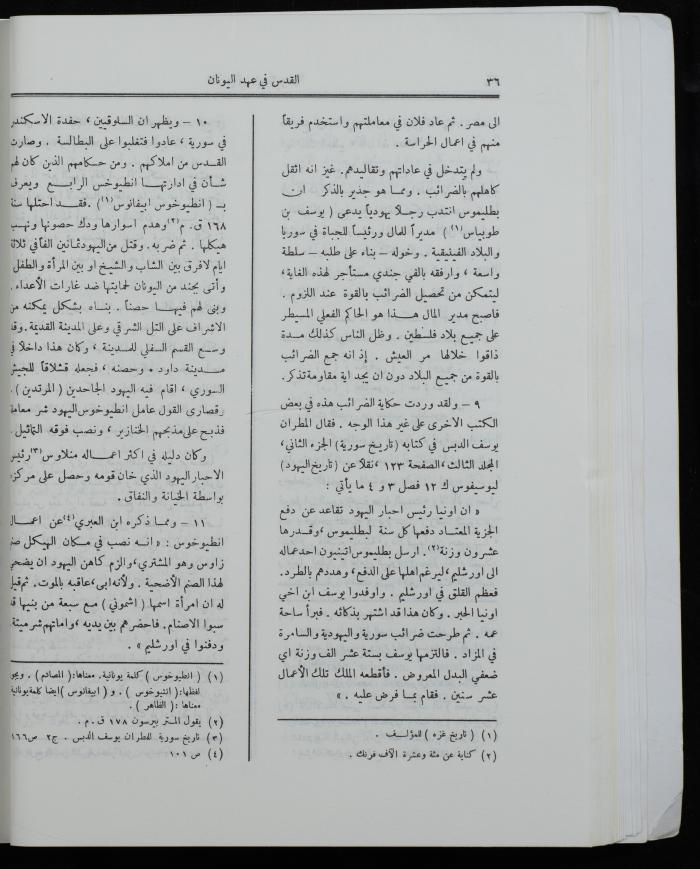 ٣٦
القدس في عهد اليونان
الى مصر . ثم عاد فلان في معاملتهم واستخدم فريقاً
منهم في اعمال الحراسة .
ولم يتدخل في عاداتهم وتقاليدهم. غير انه اثقل
كاهلهم بالضرائب . ومما هو جدير بالذكر ان
بطليموس انتدب رجلاً يهودياً يدعى ( يوسف بن
طوبياس(١) ) مديراً للمال ورئيساً للجباة في سوريا
والبلاد الفينيقية . وخوله – بناء على طلبه – سلطة
واسعة ، وارفقه بالفي جندي مستأجر لهذه الغاية،
ليتمكن من تحصيل الضرائب بالقوة عند اللزوم .
فاصبح مدير المال هذا هو الحاكم الفعلي المسيطر
على جميع بلاد فلسطين . وظل الناس كذلك مدة
ذاقوا خلالها مر العيش . إذ انه جمع الضرائب
بالقوة من جميع البلاد دون ان يجد اية مقاومة تذكر.
٩ – ولقد وردت حكاية الضرائب هذه في بعض
الكتب الاخرى على غير هذا الوجه . فقال المطران
يوسف الدبس في كتابه (تاريخ سورية) الجزء الثاني،
المجلد الثالث، الصفحة ١٢٣ ، نقلاً عن (تاريخ اليهود)
ليوسيفوس ك ١٢ فصل ٣ و ٤ ما يأتي :
« ان اونيا رئيس احبار اليهود تقاعد عن دفع
الجزية المعتاد دفعها كل سنة لبطليموس ، وقدرها
عشرون وزنة(٢). ارسل بطليموس اتينيون احد عماله
الى اورشليم ، ليرغم اهلها على الدفع، وهددهم بالطرد.
فعظم القلق في اورشليم . واوفدوا يوسف ابن اخي
اونيا الحبر . وكان هذا قد اشتهر بذكائه . فبرأ ساحة
عمه . ثم طرحت ضرائب سورية واليهودية والسامرة
في المزاد . فالتزمها يوسف بستة عشر الف وزنة اي
ضعفي البدل المعروض . فأقطعه الملك تلك الأعمال
عشر سنين . فقام بما فرض عليه . »
(١) ( تاريخ غزه ) للمؤلف .
(٢) كناية عن مئة وعشرة الآف فرنك .
١٠ – ويظهر ان السلوقيين ، حفدة الاسكندر
في سورية ، عادوا فتغلبوا على البطالسة . وصارت
القدس من املاكهم . ومن حكامهم الذين كان لهم
شأن في ادارتها انطيوخس الرابع ويعرف
بـ ( انطيوخوس ابيفانوس(١)) .فقد احتلها سنة
١٦٨ ق. م(٢) وهدم اسوارها ودك حصونها ونهب
هيكلها . ثم ضربه. وقتل من اليهود ثمانين الفاً في ثلاثة
ايام لا فرق بين الشاب والشيخ او بين المرأة والطفل
وأتى بجند من اليونان لحمايتها ضد غارات الأعداء .
وبنى لهم فيها حصناً . بناه بشكل يمكنه من
الاشراف على التل الشرقي وعلى المدينة القديمة. وقد
وسع القسم السفلي للمدينة ، وكان هذا داخلاً في
مدينة داود . وحصنه ، فجعله قشلاقاً للجيش
السوري ، اقام فيه اليهود الجاحدين ( المرتدين ) .
وقصارى القول عامل انطيوخوس اليهود شر معاملة
فذبح على مذبحهم الخنازير ، ونصب فوقه التماثيل .
وكان دليله في اكثر اعماله منلاوس(٣) رئيس
الاحبار اليهود الذي خان قومه وحصل على مركزه
بواسطة الخيانة والنفاق .
١١ – ومما ذكره ابن العبري(٤) عن اعمال
انطيوخوس : « انه نصب في مكان الهيكل صنم
زاوس وهو المشتري، والزم كاهن اليهود ان يضحي
لهذا الصنم الأضحية . ولأنه ابى، عاقبه بالموت. ثم قيل
له ان امرأة اسمها ( اشموني ) مع سبعة من بنيها قد
سبوا الاصنام. فاحضرهم بين يديه ، واماتهم شر ميتة.
ودفنوا في اورشليم » .
(١) ( انطيوخوس ) كلمة يونانية. معناها: ( المصادم ) .
لفظها: ( انتيوخوس ) . و ( ابيفانوس ) ايضاً كلمة يونانية
معناها : ( الظاهر ) .
(٢) يقول المستر بيرسون ١٧٨ ق . م .
(٣) تاريخ سورية للمطران يوسف الدبس . ج٢ ص١٦٦
(٤) ص ١٠١